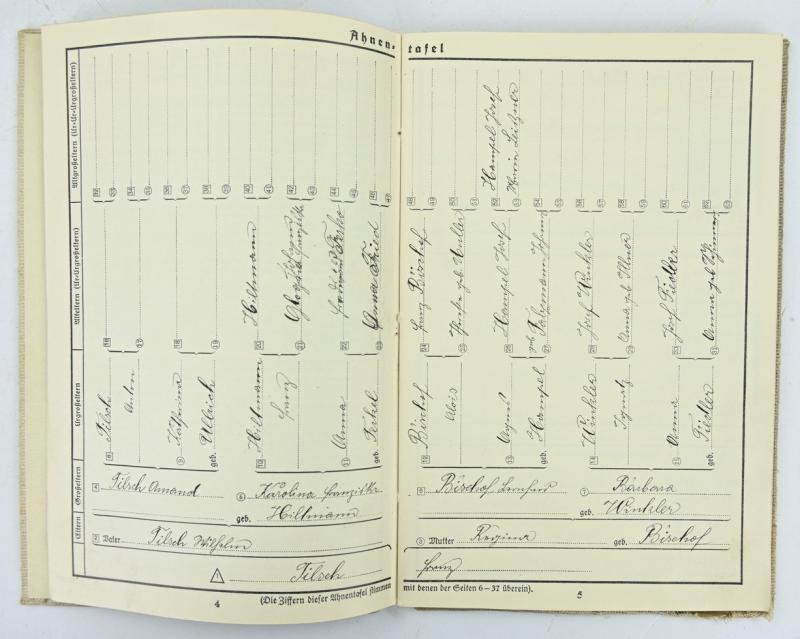 Ahnen-tafel
Altgroßeltern (Ur-Ur-Urgroßeltern)
32 33 34 35 36 37 38 39 40 41 42 43 44 45 46 47
48 49 50 51 52 53 54 55 56 57 58 59 60 61 62 63
Hampel Josef
Alteltern (Ur-Urgroßeltern)
16 17 18 19
20 Hiltmann
21
22
23 Anna Fried
24 Franz Bischof
25
26 Hampel Josef
27 geb. Salzmann
28 Josef Winkler
29 Anna geb.
30 Josef Fiedler
31 Anna geb.
Urgroßeltern
8 Tilsch
Anton
9 Katharina
geb. Ullrich
10 Hiltmann
Franz
11 Anna
geb. Ferkel
12 Bischof
Alois
13 Agnes
geb. Hampel
14 Winkler
Ignatz
15 Anna
geb. Fiedler
Großeltern
4 Tilsch Amand
5 Karolina Franziska
geb. Hiltmann
6 Bischof Bernhard
7 Barbara
geb. Winkler
Eltern
2 Vater Tilsch Wilhelm
3 Mutter Regina geb. Bischof
1 Tilsch
Franz
4
(Die Ziffern dieser Ahnentafel stimmen
mit denen der Seiten 6–37 überein).
5